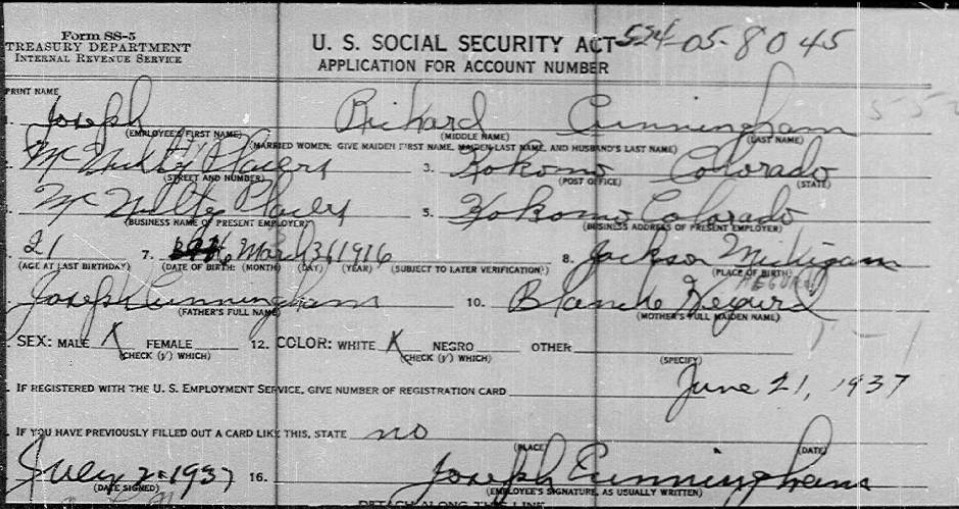 Form SS-5
TREASURY DEPARTMENT
INTERNAL REVENUE SERVICE
U. S. SOCIAL SECURITY ACT
APPLICATION FOR ACCOUNT NUMBER
524-05-8045
PRINT NAME
Joseph Richard Cunningham
(EMPLOYEE'S FIRST NAME) (MIDDLE NAME) (LAST NAME)
(MARRIED WOMEN: GIVE MAIDEN FIRST NAME, MAIDEN LAST NAME, AND HUSBAND'S LAST NAME)
McNulty Placers 3. Kokomo Colorado
(STREET AND NUMBER) (POST OFFICE) (STATE)
McNulty Placers 5. Kokomo Colorado
(BUSINESS NAME OF PRESENT EMPLOYER) (BUSINESS ADDRESS OF PRESENT EMPLOYER)
21 7. March 1916 8. Jackson Michigan
(AGE AT LAST BIRTHDAY) (DATE OF BIRTH: (MONTH) (DAY) (YEAR) (SUBJECT TO LATER VERIFICATION) (PLACE OF BIRTH)
Joseph Cunningham 10. Blanche
(FATHER'S FULL NAME) (MOTHER'S FULL MAIDEN NAME)
SEX: MALE X FEMALE 12. COLOR: WHITE X NEGRO OTHER
(CHECK (√) WHICH) (CHECK (√) WHICH) (SPECIFY)
IF REGISTERED WITH THE U. S. EMPLOYMENT SERVICE, GIVE NUMBER OF REGISTRATION CARD
June 21, 1937
IF YOU HAVE PREVIOUSLY FILLED OUT A CARD LIKE THIS, STATE no
(PLACE) (DATE)
July 2-1937 16. Joseph Cunningham
(DATE SIGNED) (EMPLOYEE'S SIGNATURE, AS USUALLY WRITTEN)
DETACH ALONG THIS LINE